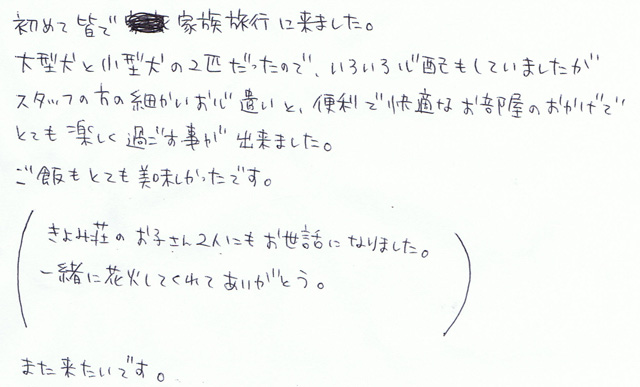 初めて皆で家族旅行に来ました。
大型犬と小型犬の2匹だったので、いろいろ心配もしていましたが
スタッフの方の細かいお心遣いと、便利で快適なお部屋のおかげで
とても楽しく過ごす事が出来ました。
ご飯もとても美味しかったです。
(きよみ荘のお子さん2人にもお世話になりました。
一緒に花火してくれてありがとう。)
また来たいです。